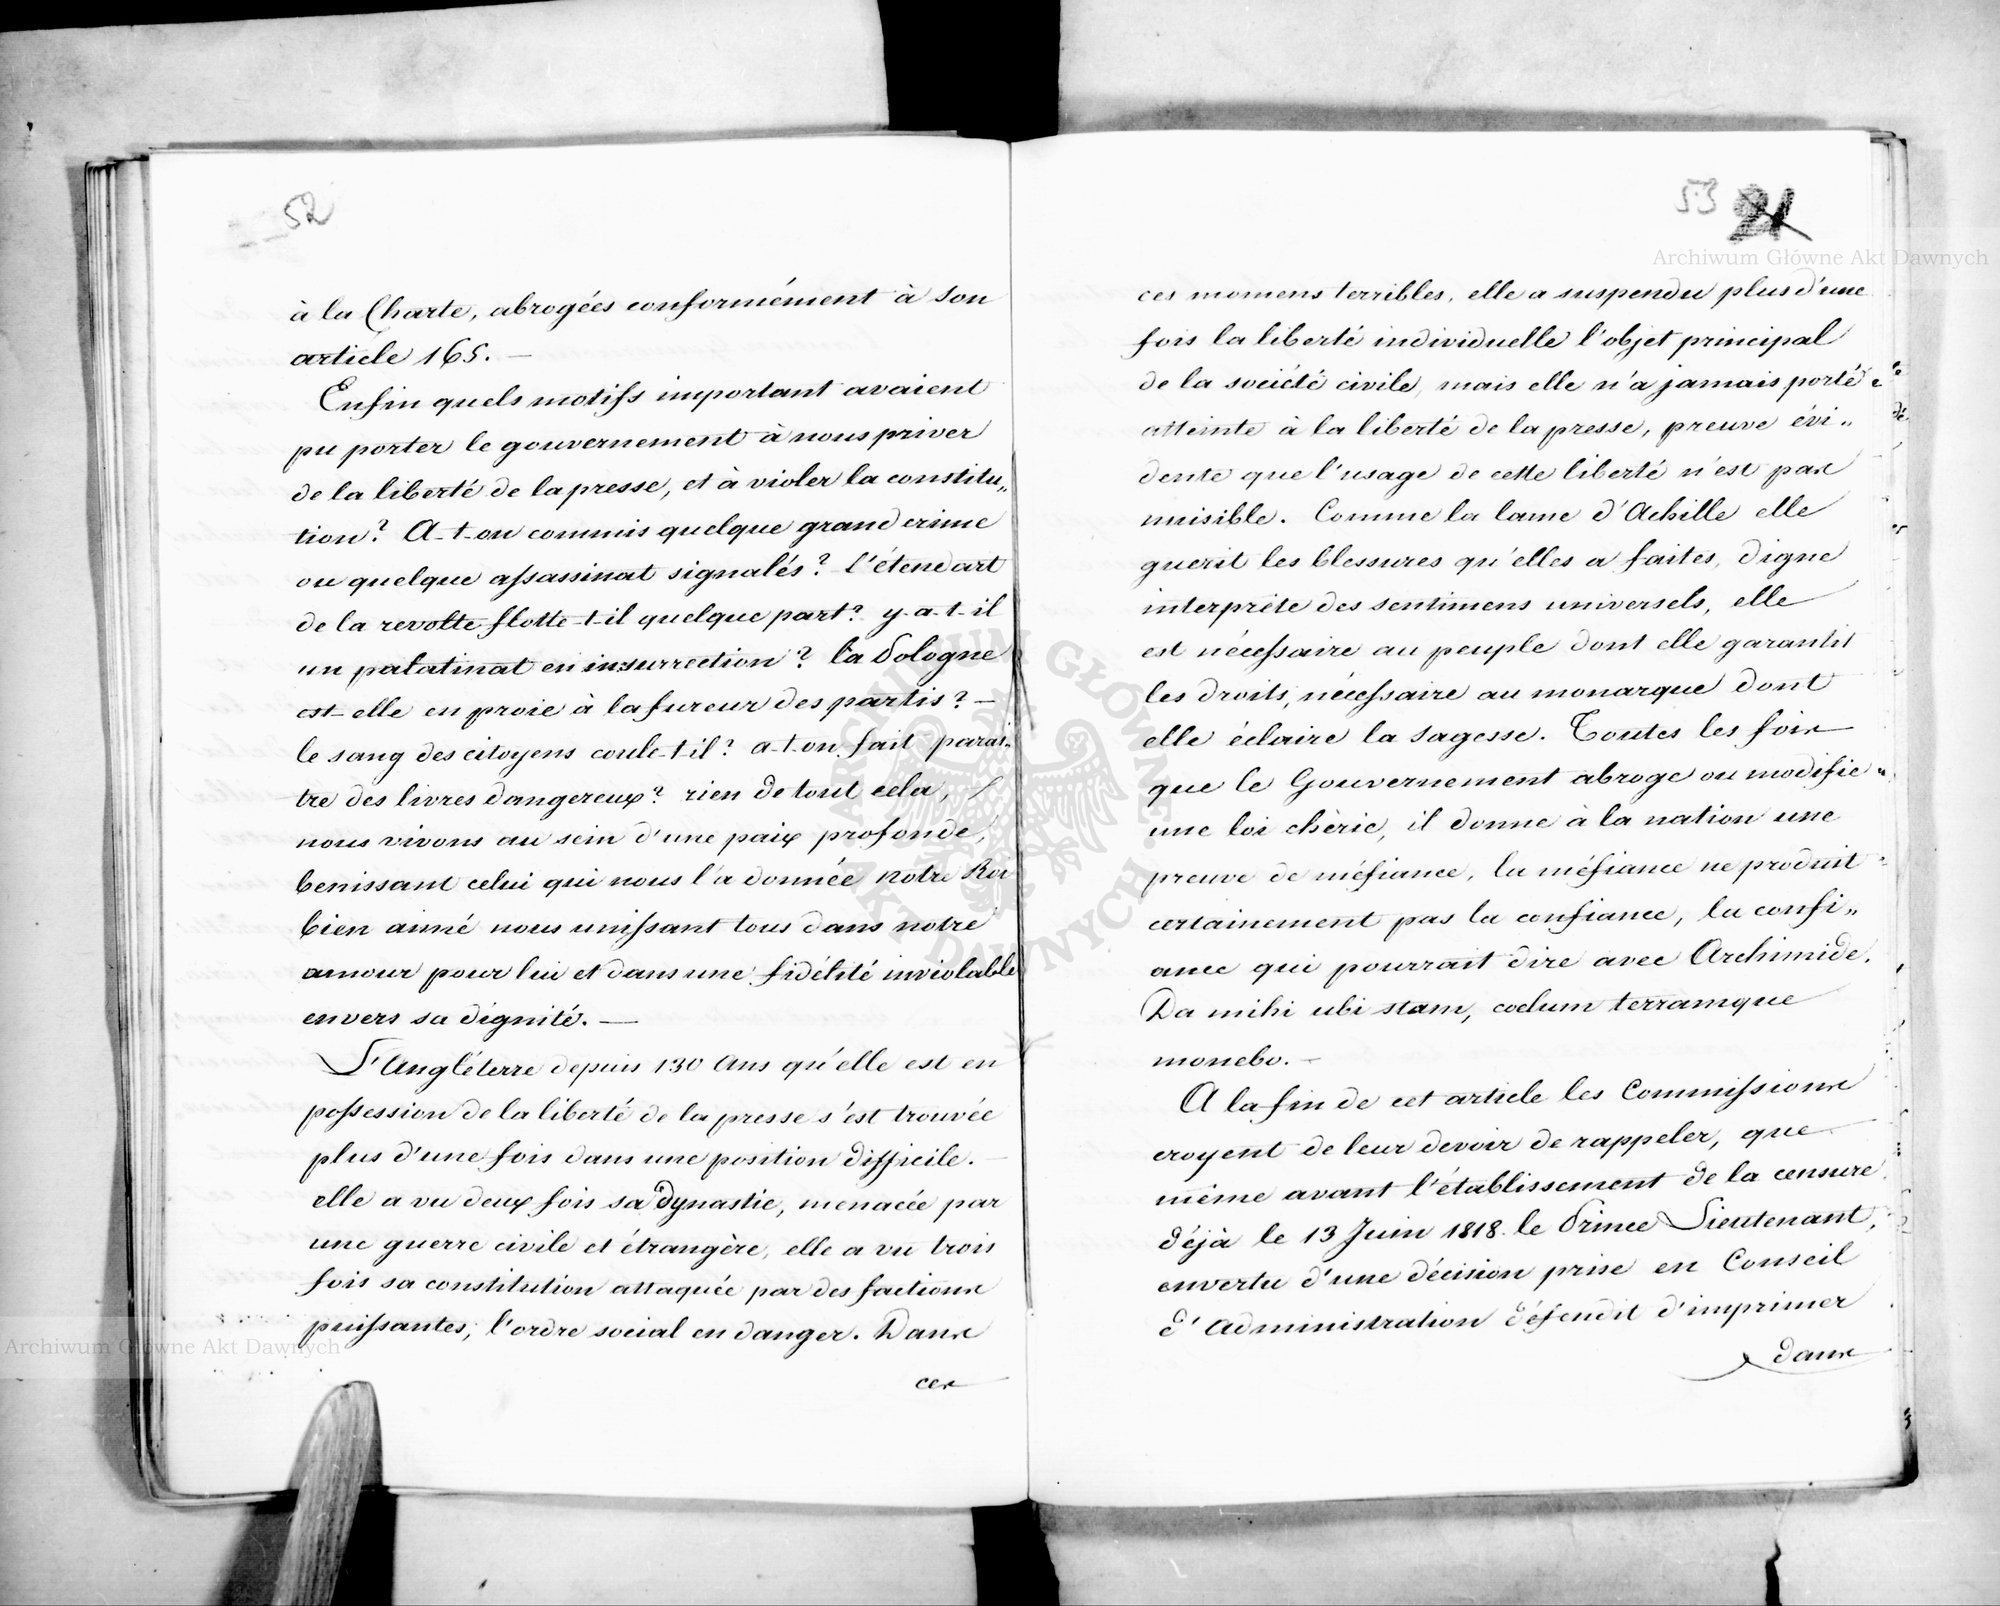 52
à la Charte, abrogées conformément à son
article 165. —
Enfin quels motifs important avaient
pu porter le gouvernement à nous priver
de la liberté de la presse, et à violer la constitu„
tion? A-t-on commis quelque grand crime
ou quelque assassinat signalés? l'étendart
de la revolte flotte-t-il quelque part? y-a-t-il
un palatinat en insurrection? la Pologne
est-elle en proie à la fureur des partis? —
le sang des citoyens coule-t-il? a-t-on fait parai„
tre des livres dangereux? rien de tout cela,
nous vivons au sein d'une paix profonde,
benissant celui qui nous l'a donnée notre Roi
bien aimé nous unissant tous dans notre
amour pour lui et dans une fidélité inviolable
envers sa dignité. —
L'Angléterre depuis 130 Ans qu'elle est en
possession de la liberté de la presse s'est trouvée
plus d'une fois dans une position difficile. —
elle a vu deux fois sa Dynastie, menacée par
une guerre civile et étrangère, elle a vu trois
fois sa constitution attaquée par des factions
puissantes, l'ordre social en danger. Dans
ces
53 21
ces momens terribles, elle a suspendu plus d'une
fois la liberté individuelle l'objet principal
de la société civile, mais elle n'a jamais porté
atteinte à la liberté de la presse, preuve évi„
dente que l'usage de cette liberté n'est pas
nuisible. Comme la lame d'Achille elle
guerit les blessures qu'elles a faites, digne
interprète des sentimens universels, elle
est nécessaire au peuple dont elle garantit
les droits, nécessaire au monarque dont
elle éclaire la sagesse. Toutes les fois
que le Gouvernement abroge ou modifie
une loi chèrie, il donne à la nation une
preuve de méfiance, la méfiance ne produit
certainement pas la confiance, la confi„
ance qui pourrait dire avec Archimide.
Da mihi ubi stam, coelum terramque
monebo. —
A la fin de cet article les Commissions
croyent de leur devoir de rappeler, que
même avant l'établissement de la censure
déjà le 13 Juin 1818. le Prince Lieutenant,
envertu d'une décision prise en Conseil
d'Administration défendit d'imprimer
dans
Archiwum Główne Akt Dawnych
Archiwum Główne Akt Dawnych
ARCHIWUM GŁÓWNE AKT DAWNYCH